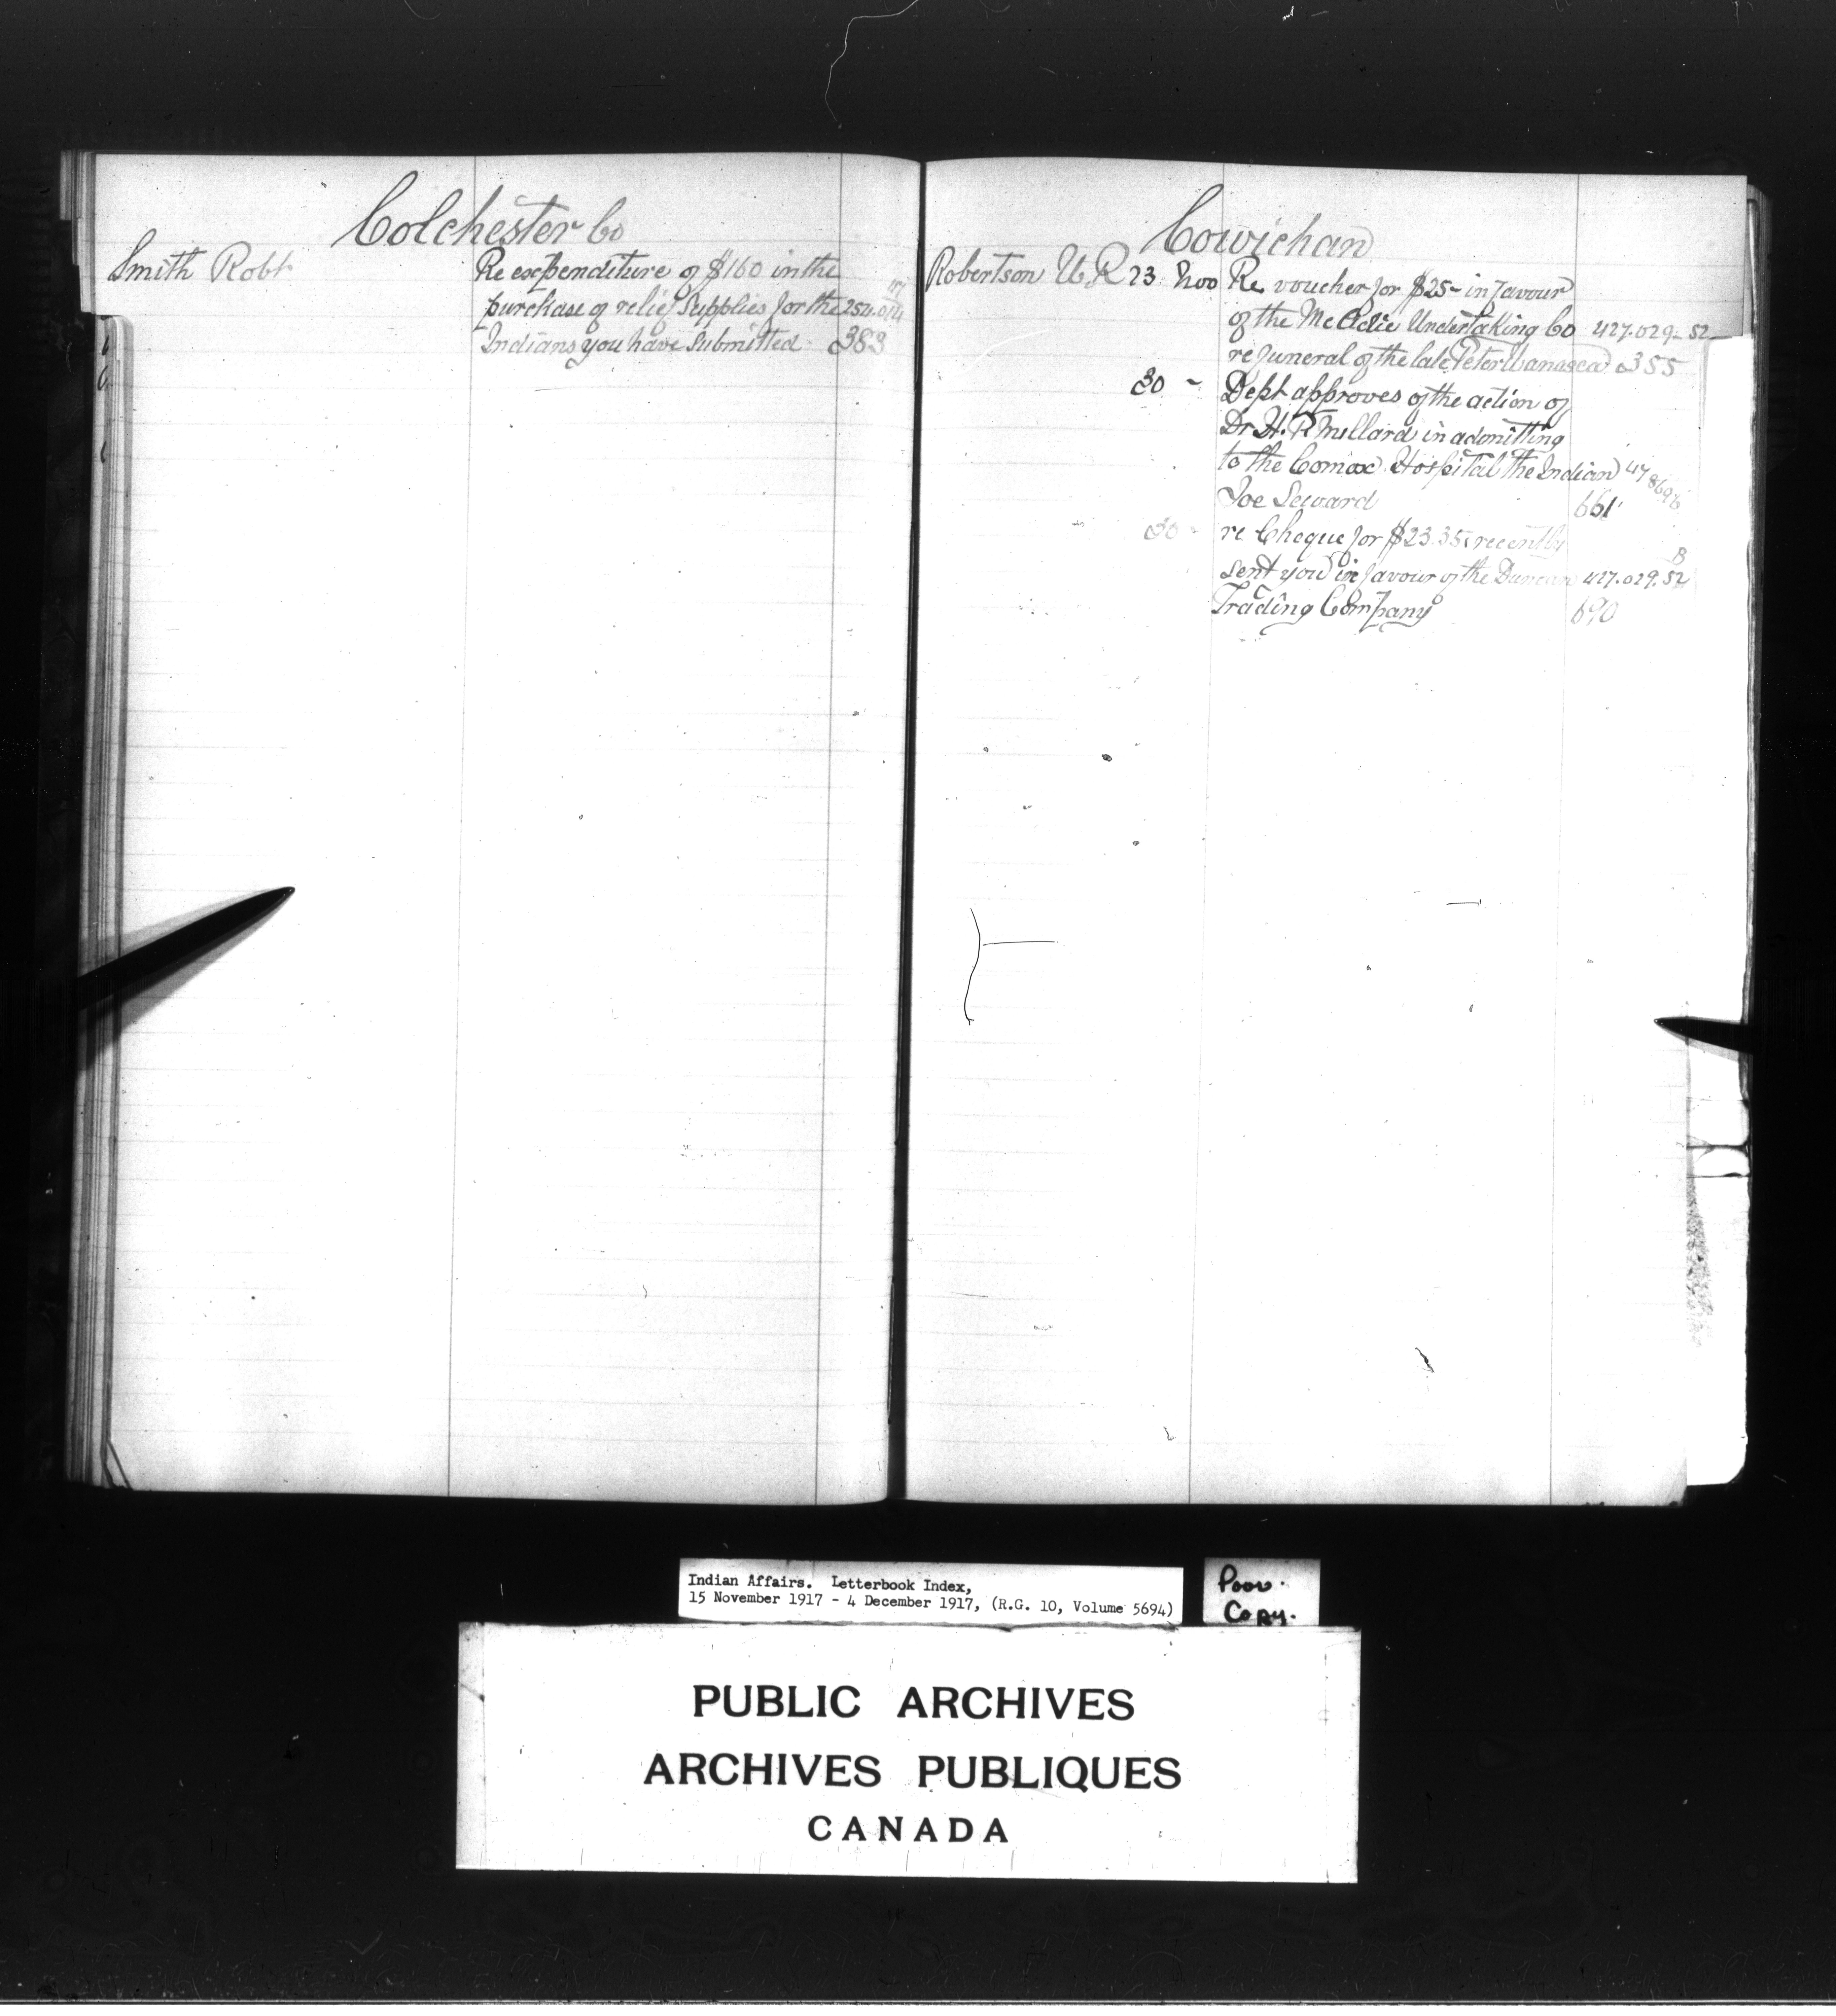 Colchester Co
Smith Robt
Re expenditure of $160 in the
purchase of relief supplies for the 254.014
Indians you have submitted 383
Cowichan
Robertson W. R 23 Nov Re voucher for $25 - in favour
of the McAdie Undertaking Co 427.029-52
re funeral of the late Peter 355
30 - Dept approves of the action of
Dr H. P. Millard in admitting
to the Comox Hospital the Indian
Joe Seward 661
30 - re Cheque for $23.35 recently
B
sent you in favour of the Duncan 427.029.52
Trading Company 690
Indian Affairs. Letterbook Index,
15 November 1917 - 4 December 1917, (R.G. 10, Volume 5694)
Poor.
Copy.
PUBLIC ARCHIVES
ARCHIVES PUBLIQUES
CANADA